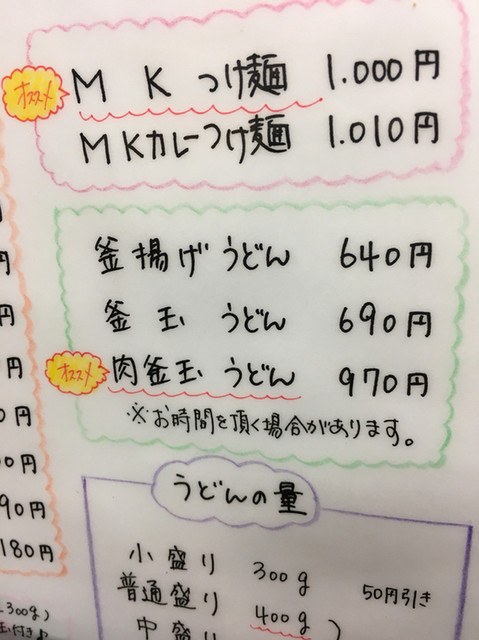 オススメ
MKつけ麺 1.000円
MKカレーつけ麺 1.010円
釜揚げうどん 640円
釜玉うどん 690円
オススメ
肉釜玉うどん 970円
※お時間を頂く場合があります。
うどんの量
小盛り 300g 50円引き
普通盛り 400g
中盛り
円
円
円
円
0円
00円
90円
180円
300g)
玉付き♪